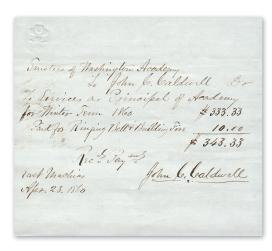 Trustees of Washington Academy
To John C. Caldwell Dr
To Services as Principal of Academy
for Winter Term 1860 $333.33
Paid for Ringing Bell & Building Fires 10.00
$343.33
Rec'd Payment
East Machias
Apr. 23. 1860
John C. Caldwell